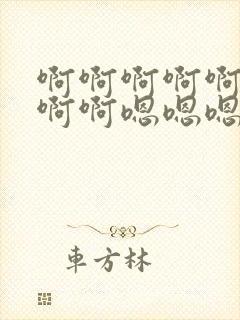 啊啊啊啊啊
啊啊嗯嗯嗯
車方林